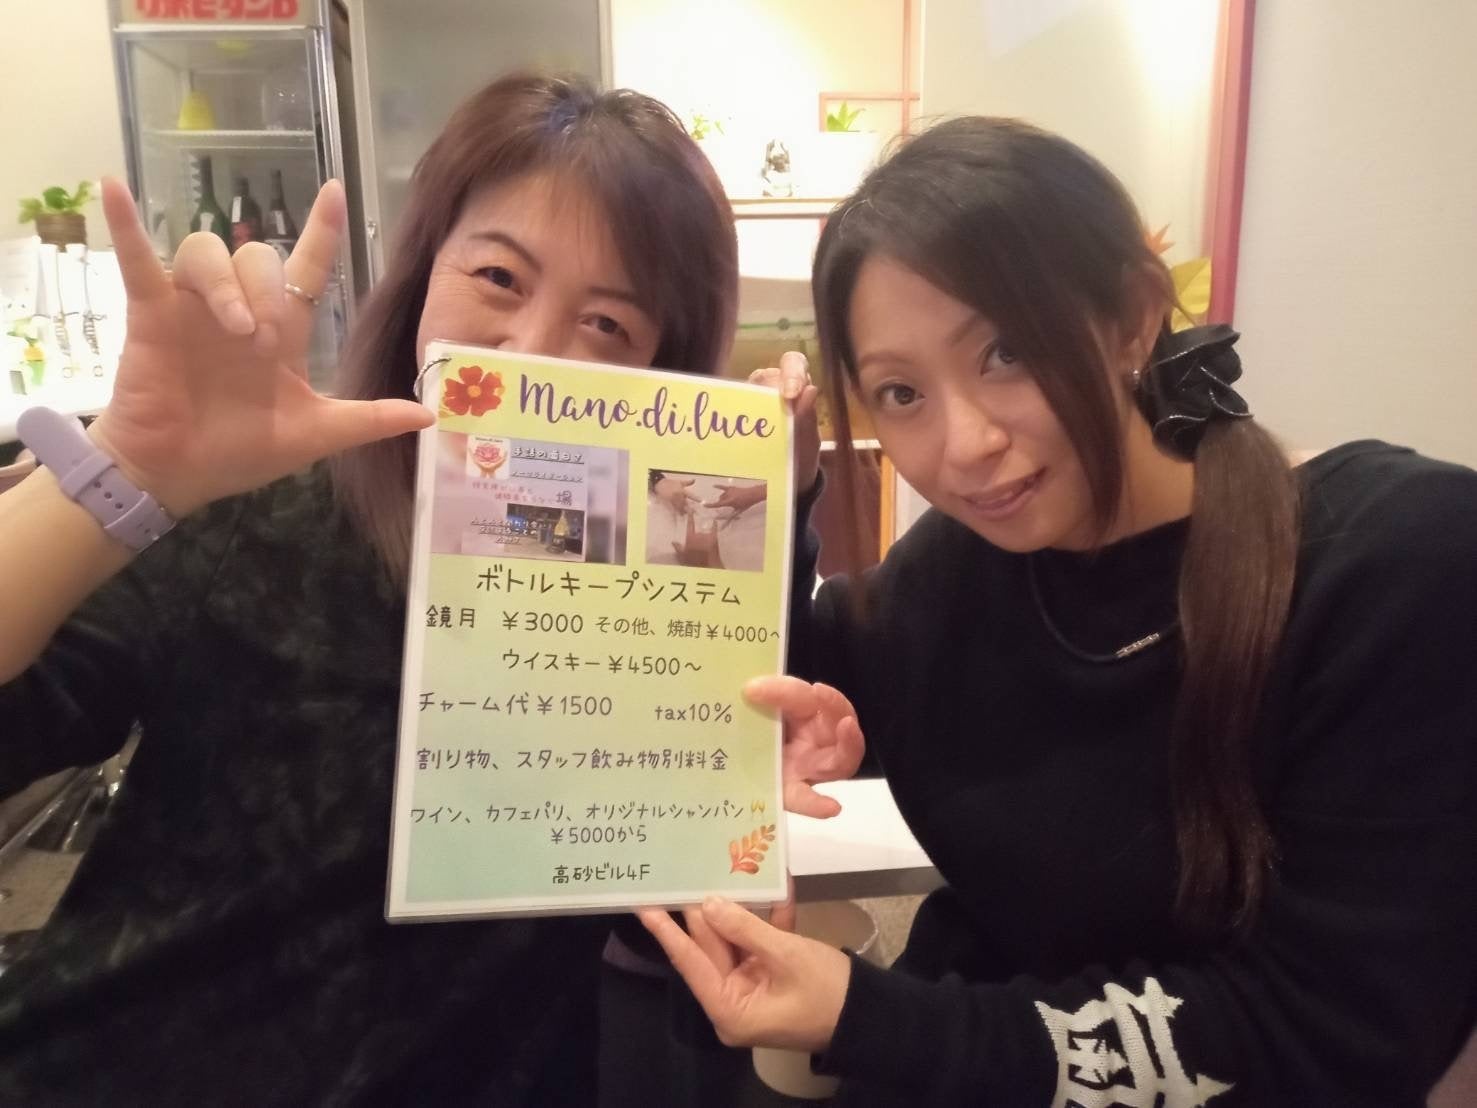 リポビタンD
Mano.di.luce
手話の面白さ
ノーマライゼーション
ボトルキープシステム
鏡月 ￥3000 その他、焼酎￥4000～
ウイスキー￥4500～
チャーム代￥1500 tax10%
割り物、スタッフ飲み物別料金
ワイン、カフェパリ、オリジナルシャンパン
￥5000から
高砂ビル4F